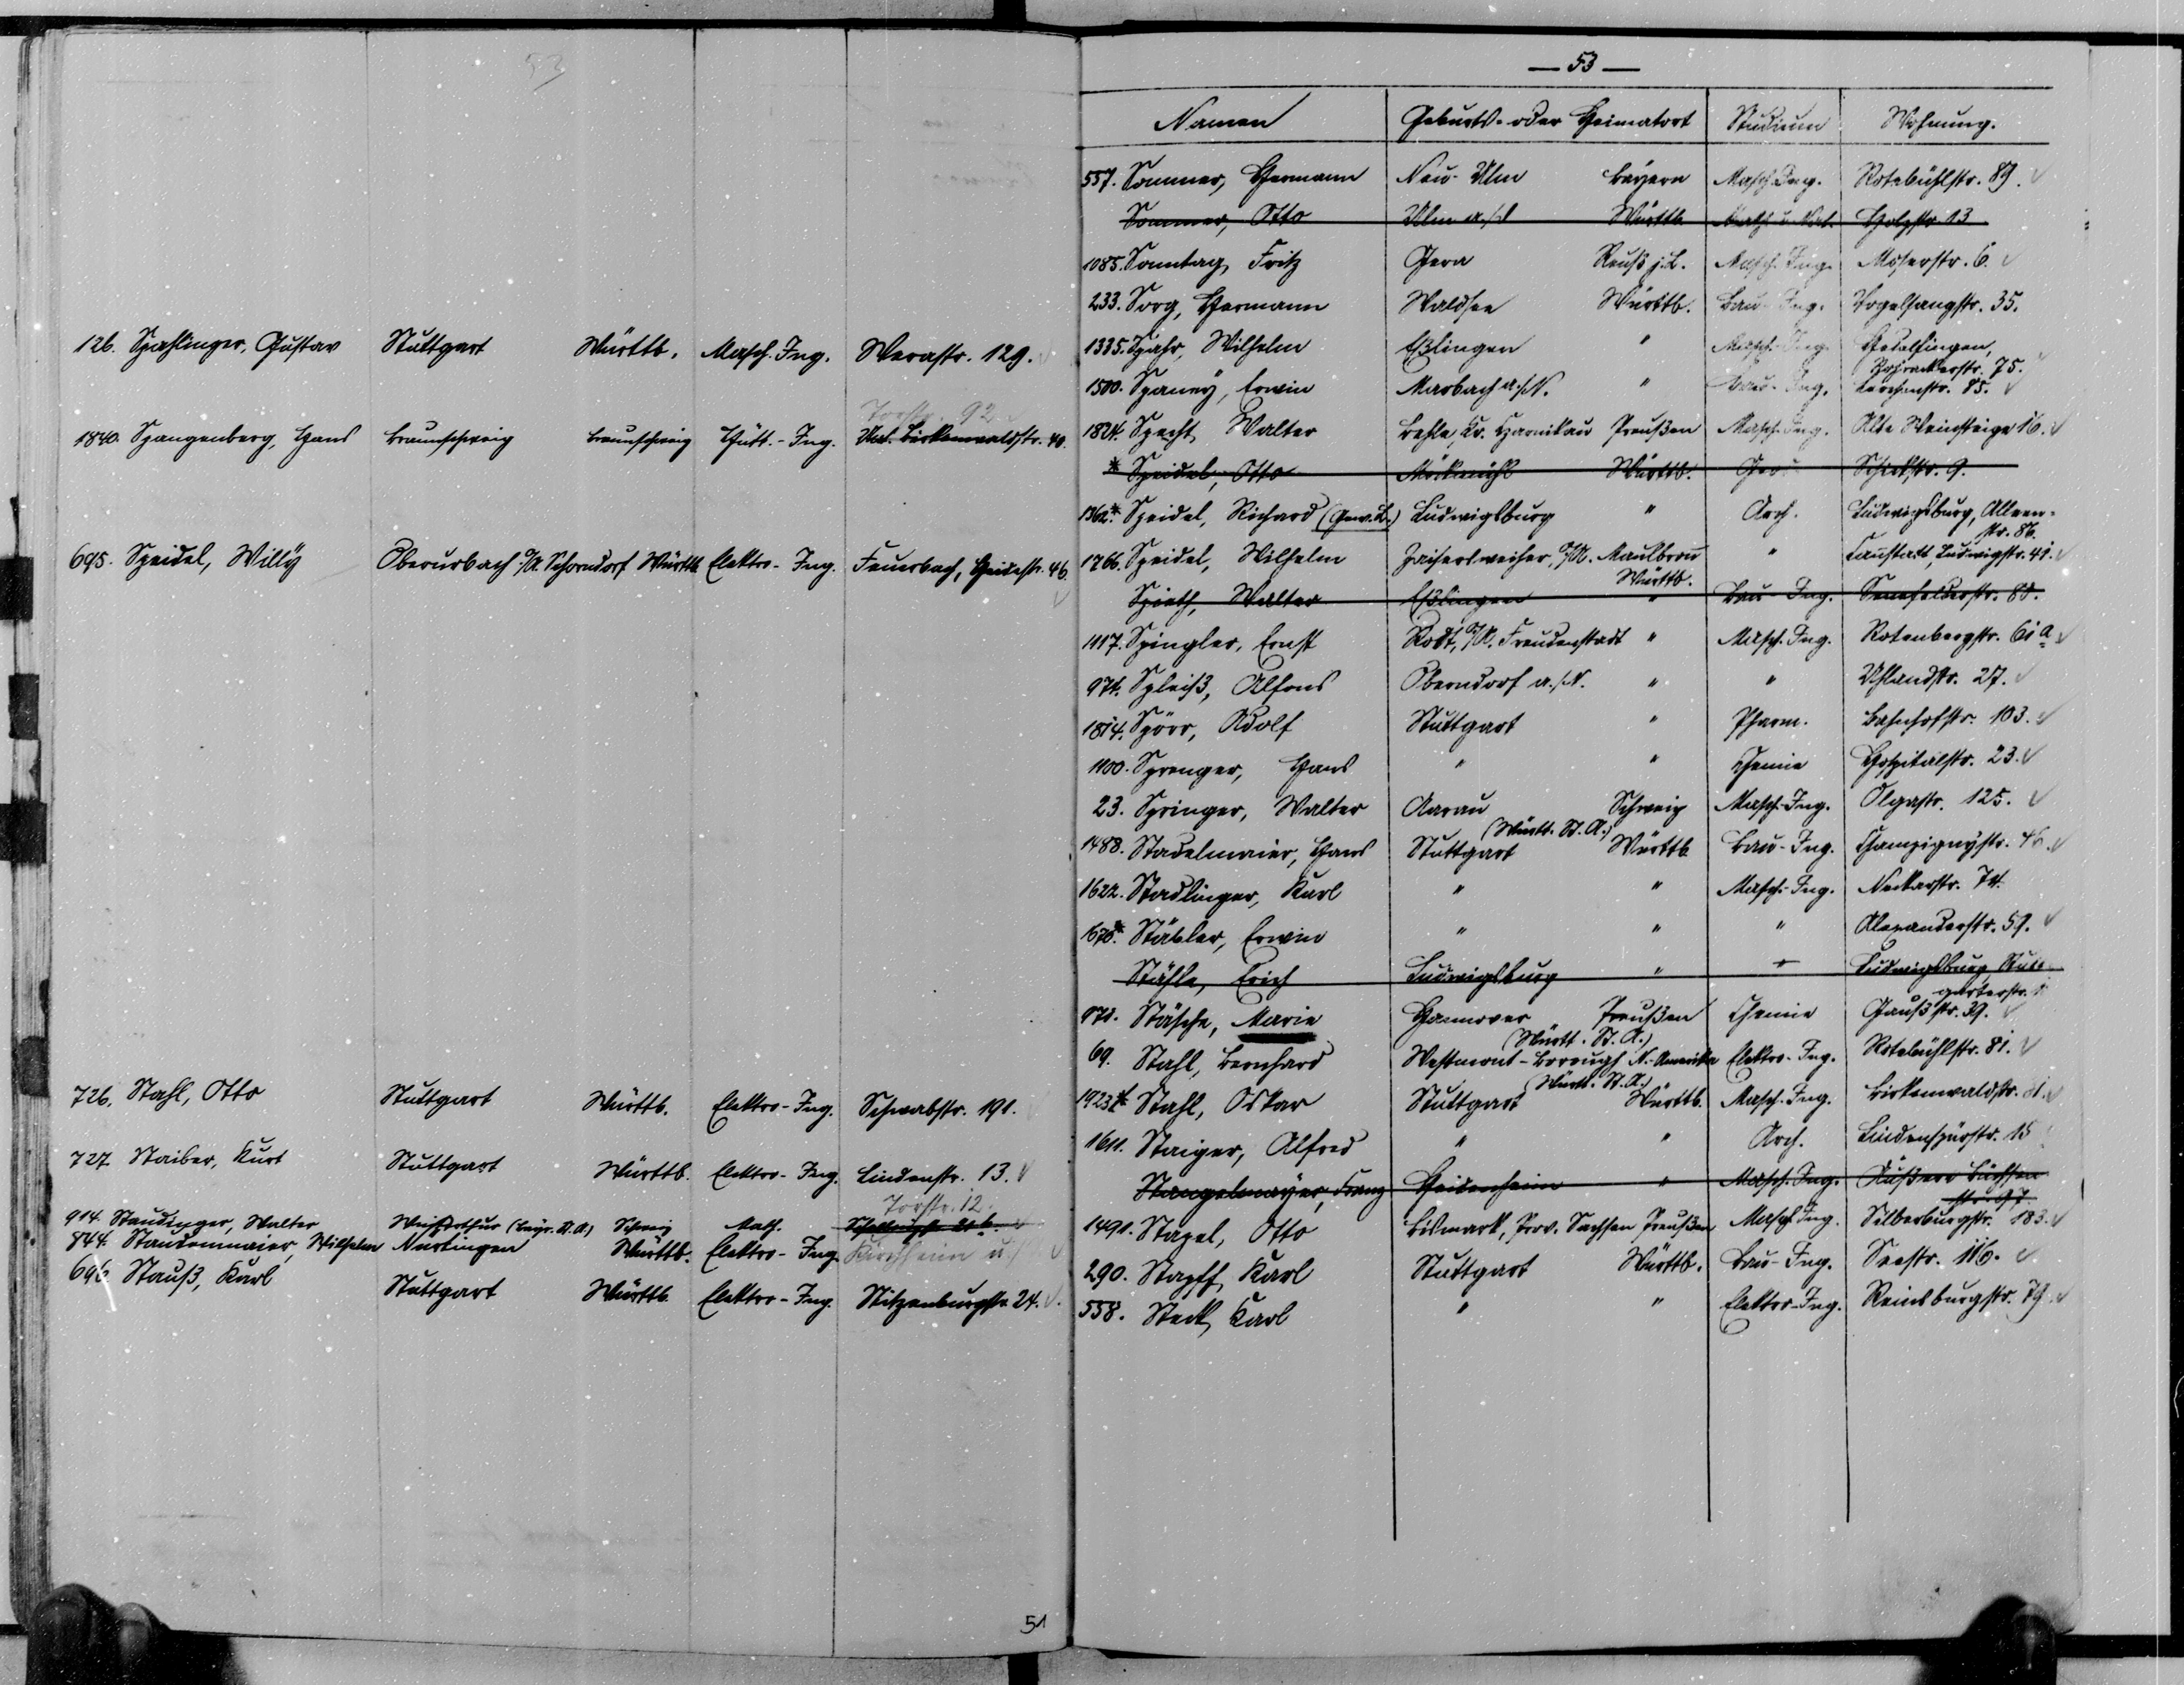 53
126. Spahlinger, Gustav Stuttgart Württb. Masch. Ing. Werastr. 129.
Torstr. 92
1840. Spangenberg, Hans Braunschweig Braunschweig Hütt.-Ing. Unt. Birkenwaldstr. 40.
695. Speidel, Willÿ Oberurbach O/A. Schorndorf Württb. Elektro-Ing. Feuerbach, Heidestr. 46.
726. Stahl, Otto Stuttgart Württb. Elektro-Ing. Schwabstr. 191.
727 Staiber, Kurt Stuttgart Württb. Elektro-Ing. Lindenstr. 13.
Torstr. 12.
914 Staudinger, Walter Winterthur (bayr. St. A.) Schweiz Math.
844. Staudenmaier, Wilhelm Nürtingen Württb. Elektro-Ing. Kirchheim u./
696 Stauß, Karl Stuttgart Württb. Elektro-Ing. Stitzenburgstr. 24.
51
— 53 —
Namen Geburts- oder Heimatort Studium Wohnung.
557. Sommer, Hermann Neu-Ulm Bayern Masch. Ing. Rotebühlstr. 89.
Sommer, Otto Ulm a./D Württb. Math. u. Nat. Holzstr. 13
1085. Sonntag, Fritz Gera Reuß j. L. Masch. Ing. Moserstr. 6.
233. Sorg, Hermann Waldsee Württb. Bau-Ing. Vogelsangstr. 35.
1335. Spahr, Wilhelm Eßlingen " Masch.-Ing. Hedelfingen,
Rohrackerstr. 75.
1500. Spaney, Erwin Marbach a./N. " Bau-Ing. Lerchenstr. 85.
1824. Specht, Walter Behle, Kr. Czarnikau Preußen Masch. Ing. Alte Weinsteige 16.
* Speidel, Otto Möckmühl Württb. Schickstr. 9.
1362.* Speidel, Richard (Gew. L.) Ludwigsburg " Arch. Ludwigsburg, Alleen-
str. 86.
1766. Speidel, Wilhelm Zaisersweiher, O/A. Maulbronn " Cannstatt, Ludwigstr. 41.
Württb.
Spieth, Walter Eßlingen " Bau-Ing. Senefelderstr. 80.
1117. Spingler, Ernst Rodt, O/A. Freudenstadt " Masch. Ing. Rotenbergstr. 61 a
974. Spleiß, Alfons Oberndorf a./N. " " Uhlandstr. 27.
1814. Spörr, Adolf Stuttgart " Pharm. Bahnhofstr. 103.
1100. Sprenger, Hans " " Chemie Hospitalstr. 23.
23. Springer, Walter Aarau Schweiz Masch.-Ing. Olgastr. 125.
(Württ. St. A.)
1488. Stadelmaier, Hans Stuttgart Württb. Bau-Ing. Champignystr. 46.
1622. Stadlinger, Karl " " Masch.-Ing. Neckarstr. 74.
1670.* Stäbler, Erwin " " " Alexanderstr. 59.
Stähle, Erich Ludwigsburg " " Ludwigsburg, Stutt-
garterstr.
971. Stäsche, Marie Hannover Preußen Chemie Gaußstr. 39.
(Württ. St. A.)
69. Stahl, Bernhard Westmont-Borough N.-Amerika Elektro-Ing. Rotebühlstr. 81.
(Württ. St. A.)
1923.* Stahl, Oskar Stuttgart Württb. Masch. Ing. Birkenwaldstr.
1611. Staiger, Alfred " " Arch. Lindenspürstr. 15
Stangelmayer, Franz Heidenheim " Masch. Ing. Äußere
1491. Stapel, Otto Bismark, Prov. Sachsen Preußen Masch. Ing. Silberburgstr. 183.
290. Stapff, Karl Stuttgart Württb. Bau-Ing. Seestr. 116.
558. Steck, Karl " " Elektro-Ing. Reinsburgstr. 79